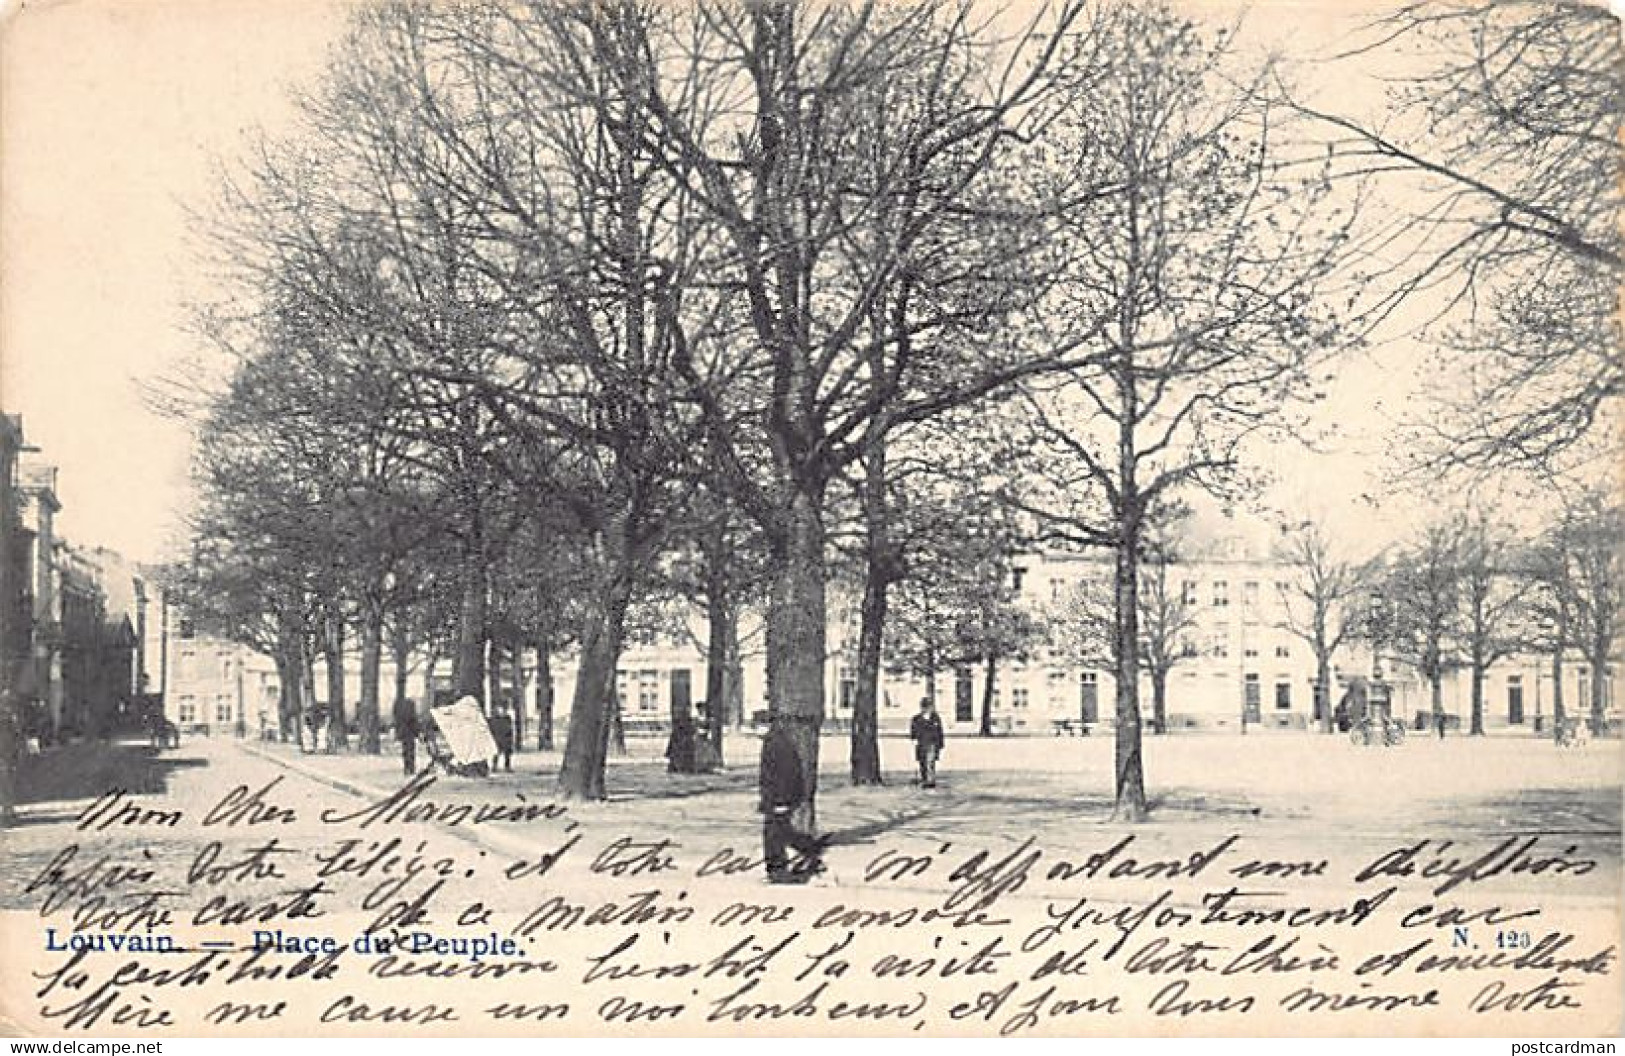 Mon Cher Monsieur,
Après Votre télégr: et Votre carte m'apportant une déception
votre carte de ce matin me console parfaitement car
Louvain. — Place du Peuple.
N. 123
la certitude recevoir bientôt la visite de Votre Chère et excellente
Mère me cause un vrai bonheur, et pour Vous même Votre
postcardman